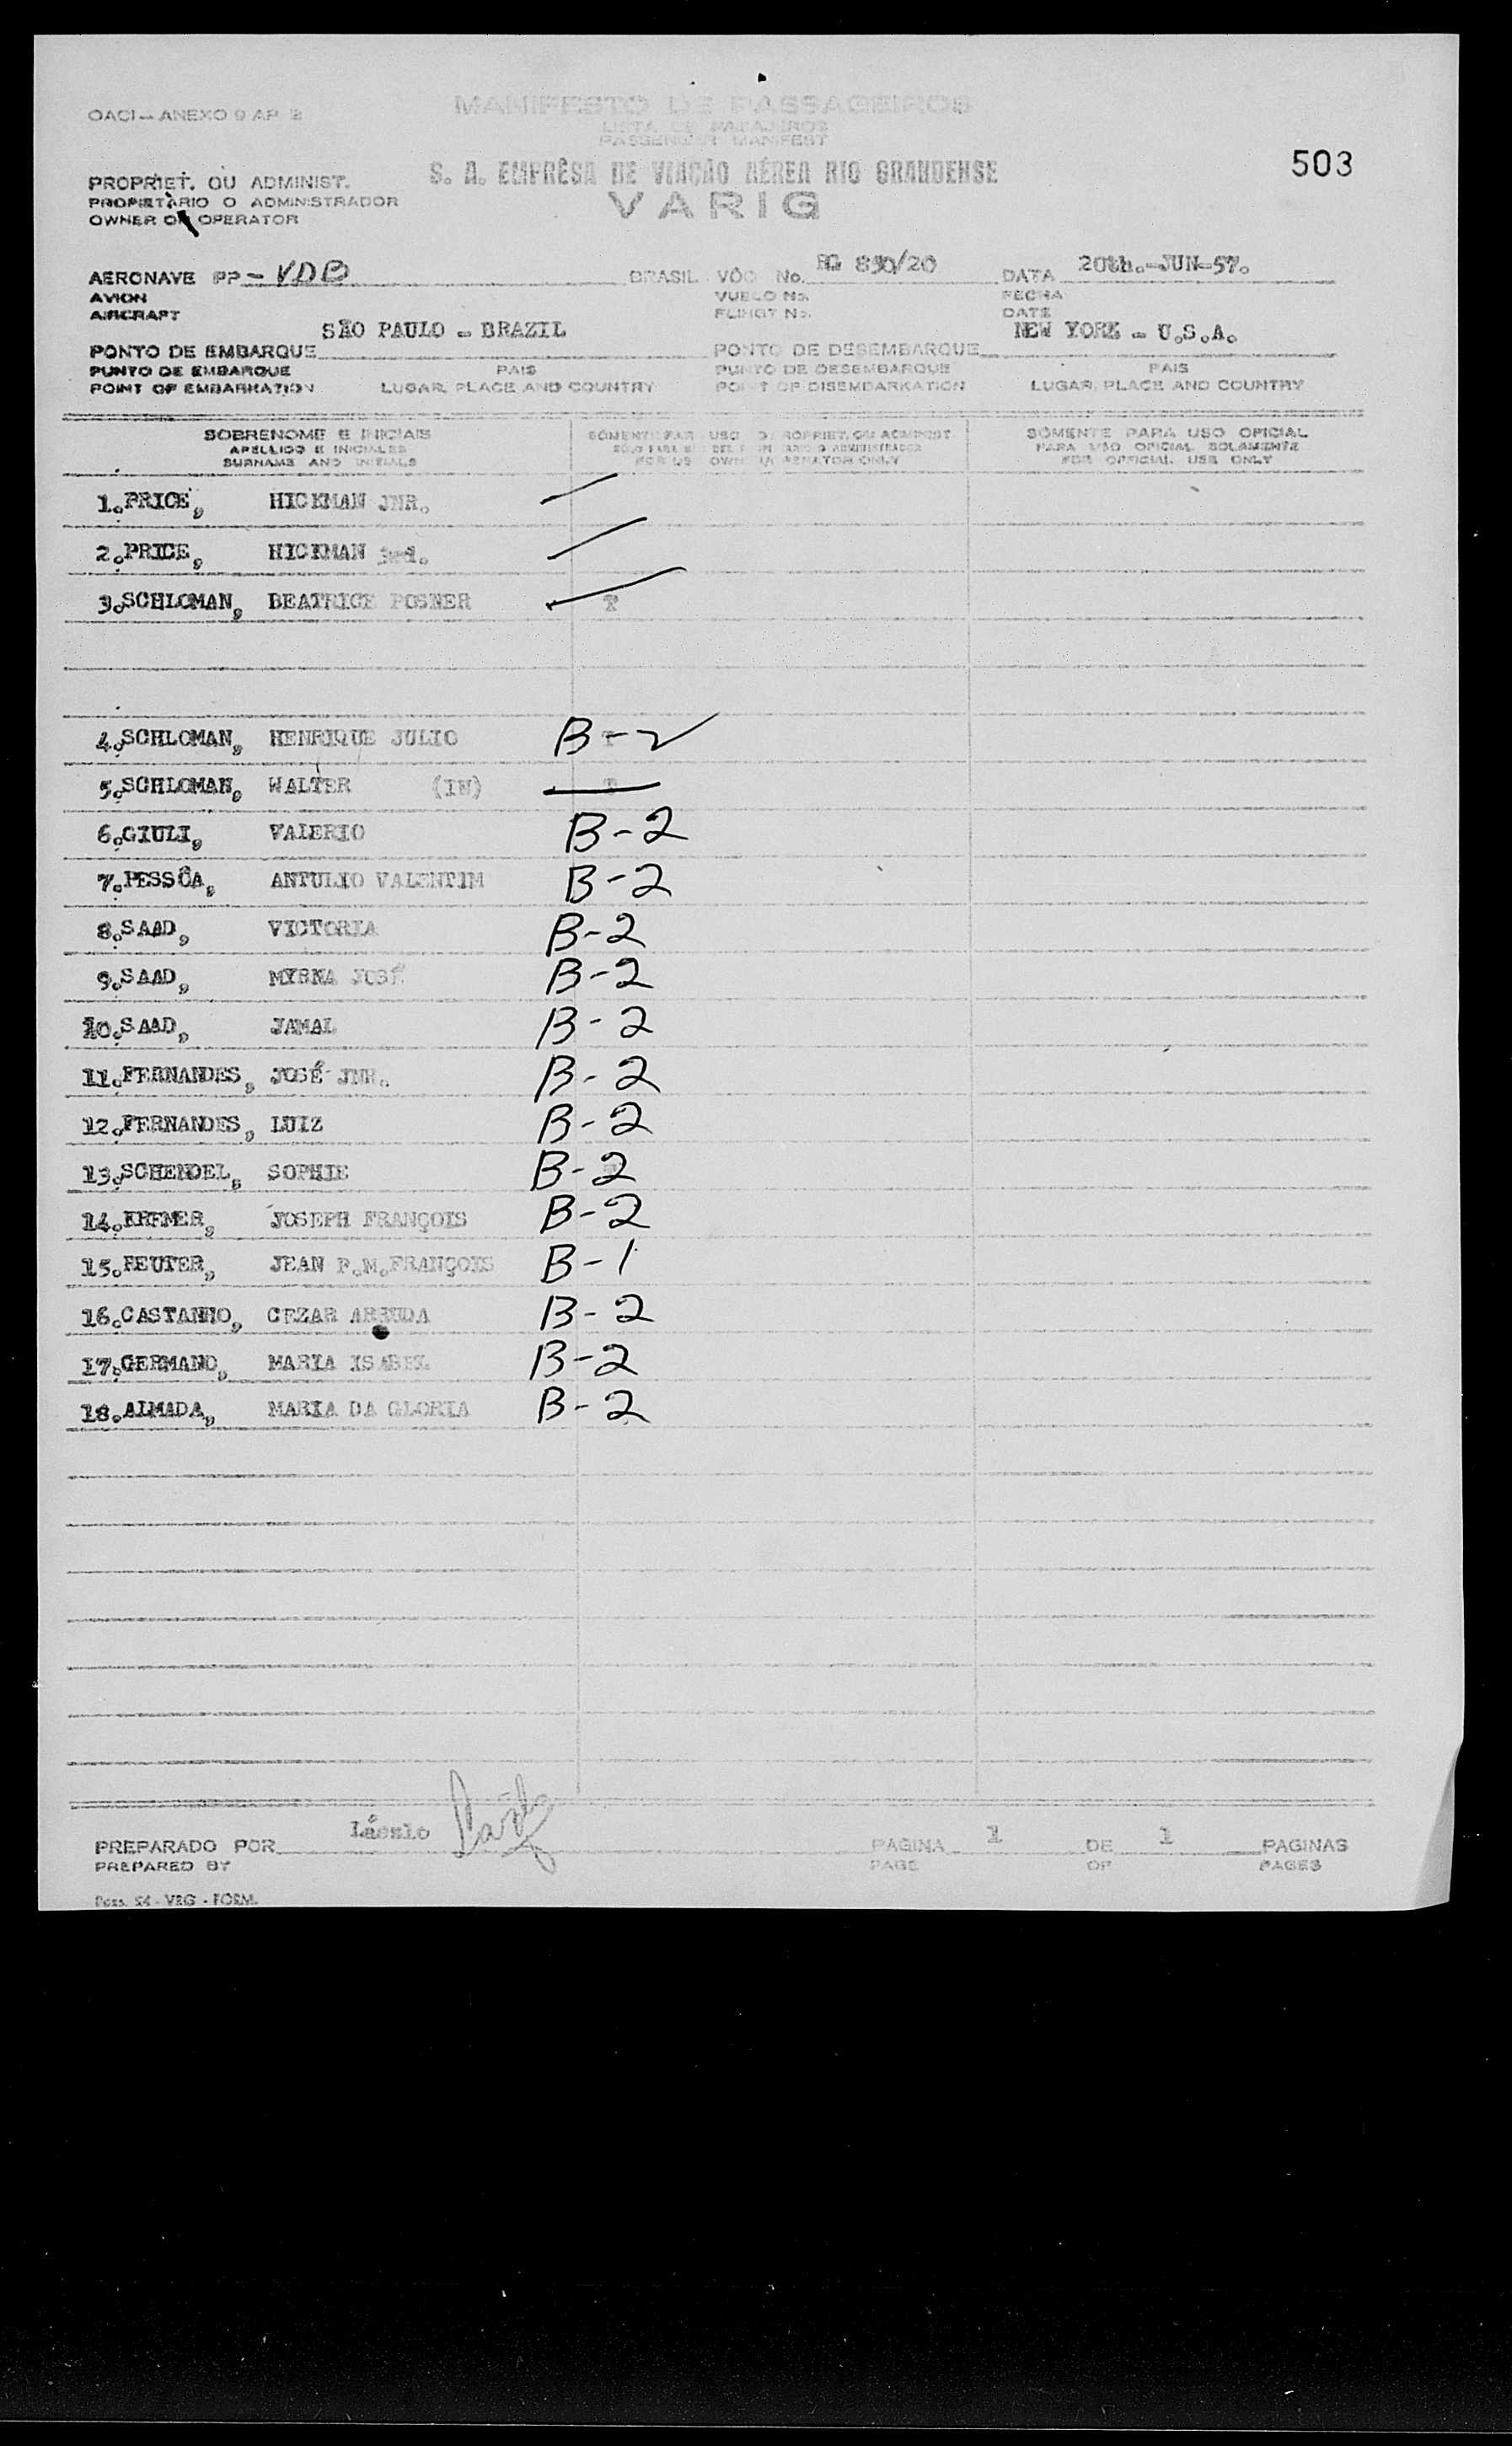 OACI — ANEXO 9 AP 2
MANIFESTO DE PASSAGEIROS
LISTA DE PASAJEROS
PASSENGER MANIFEST
S. A. EMPRÊSA DE VIAÇÃO AÉREA RIO GRANDENSE
VARIG
503
PROPRIET. OU ADMINIST.
PROPIETÁRIO O ADMINISTRADOR
OWNER OR OPERATOR
AERONAVE PP - VDB BRASIL VÔO No. RG 850/20 DATA 20th.-JUN-57.
AVION VUELO No. FECHA
AIRCRAFT FLIHGT No. DATE
SÃO PAULO - BRAZIL NEW YORK - U.S.A.
PONTO DE EMBARQUE PONTO DE DESEMBARQUE
PUNTO DE EMBARQUE PAIS PUNTO DE DESEMBARQUE PAIS
POINT OF EMBARKATION LUGAR, PLACE AND COUNTRY POINT OF DISEMBARKATION LUGAR, PLACE AND COUNTRY
SOBRENOME E INICIAIS SÓMENTE PAR USO ROPRIET. OU ADMINIST. SÓMENTE PARA USO OFICIAL
APELLIDO E INICIALES ADMINISTRADOR PARA USO OFICIAL SOLAMENTE
SURNAME AND INITIALS FOR US OWN OPERATOR ONLY FOR OFFICIAL USE ONLY
1. PRICE, HICKMAN JNR.
2. PRICE, HICKMAN
3. SCHLOMAN, BEATRICE POSNER T
4. SCHLOMAN, HENRIQUE JULIO B-2
5. SCHLOMAN, WALTER (IN)
6. GIULI, VALERIO B-2
7. PESSÔA, ANTULIO VALENTIM B-2
8. SAAD, VICTORIA B-2
9. SAAD, MYRNA JOSÉ B-2
10. SAAD, JAMAL B-2
11. FERNANDES, JOSÉ JNR. B-2
12. FERNANDES, LUIZ B-2
13. SCHENDEL, SOPHIE B-2
14. KREMER, JOSEPH FRANÇOIS B-2
15. REUTER, JEAN P.M.FRANÇOIS B-1
16. CASTANHO, CEZAR ARRUDA B-2
17. GERMANO, MARIA ISABEL B-2
18. ALMADA, MARIA DA GLORIA B-2
PREPARADO POR László PAGINA 1 DE 1 PAGINAS
PREPARED BY PAGE OF PAGES
Pass. 24 - VRG - FORM.